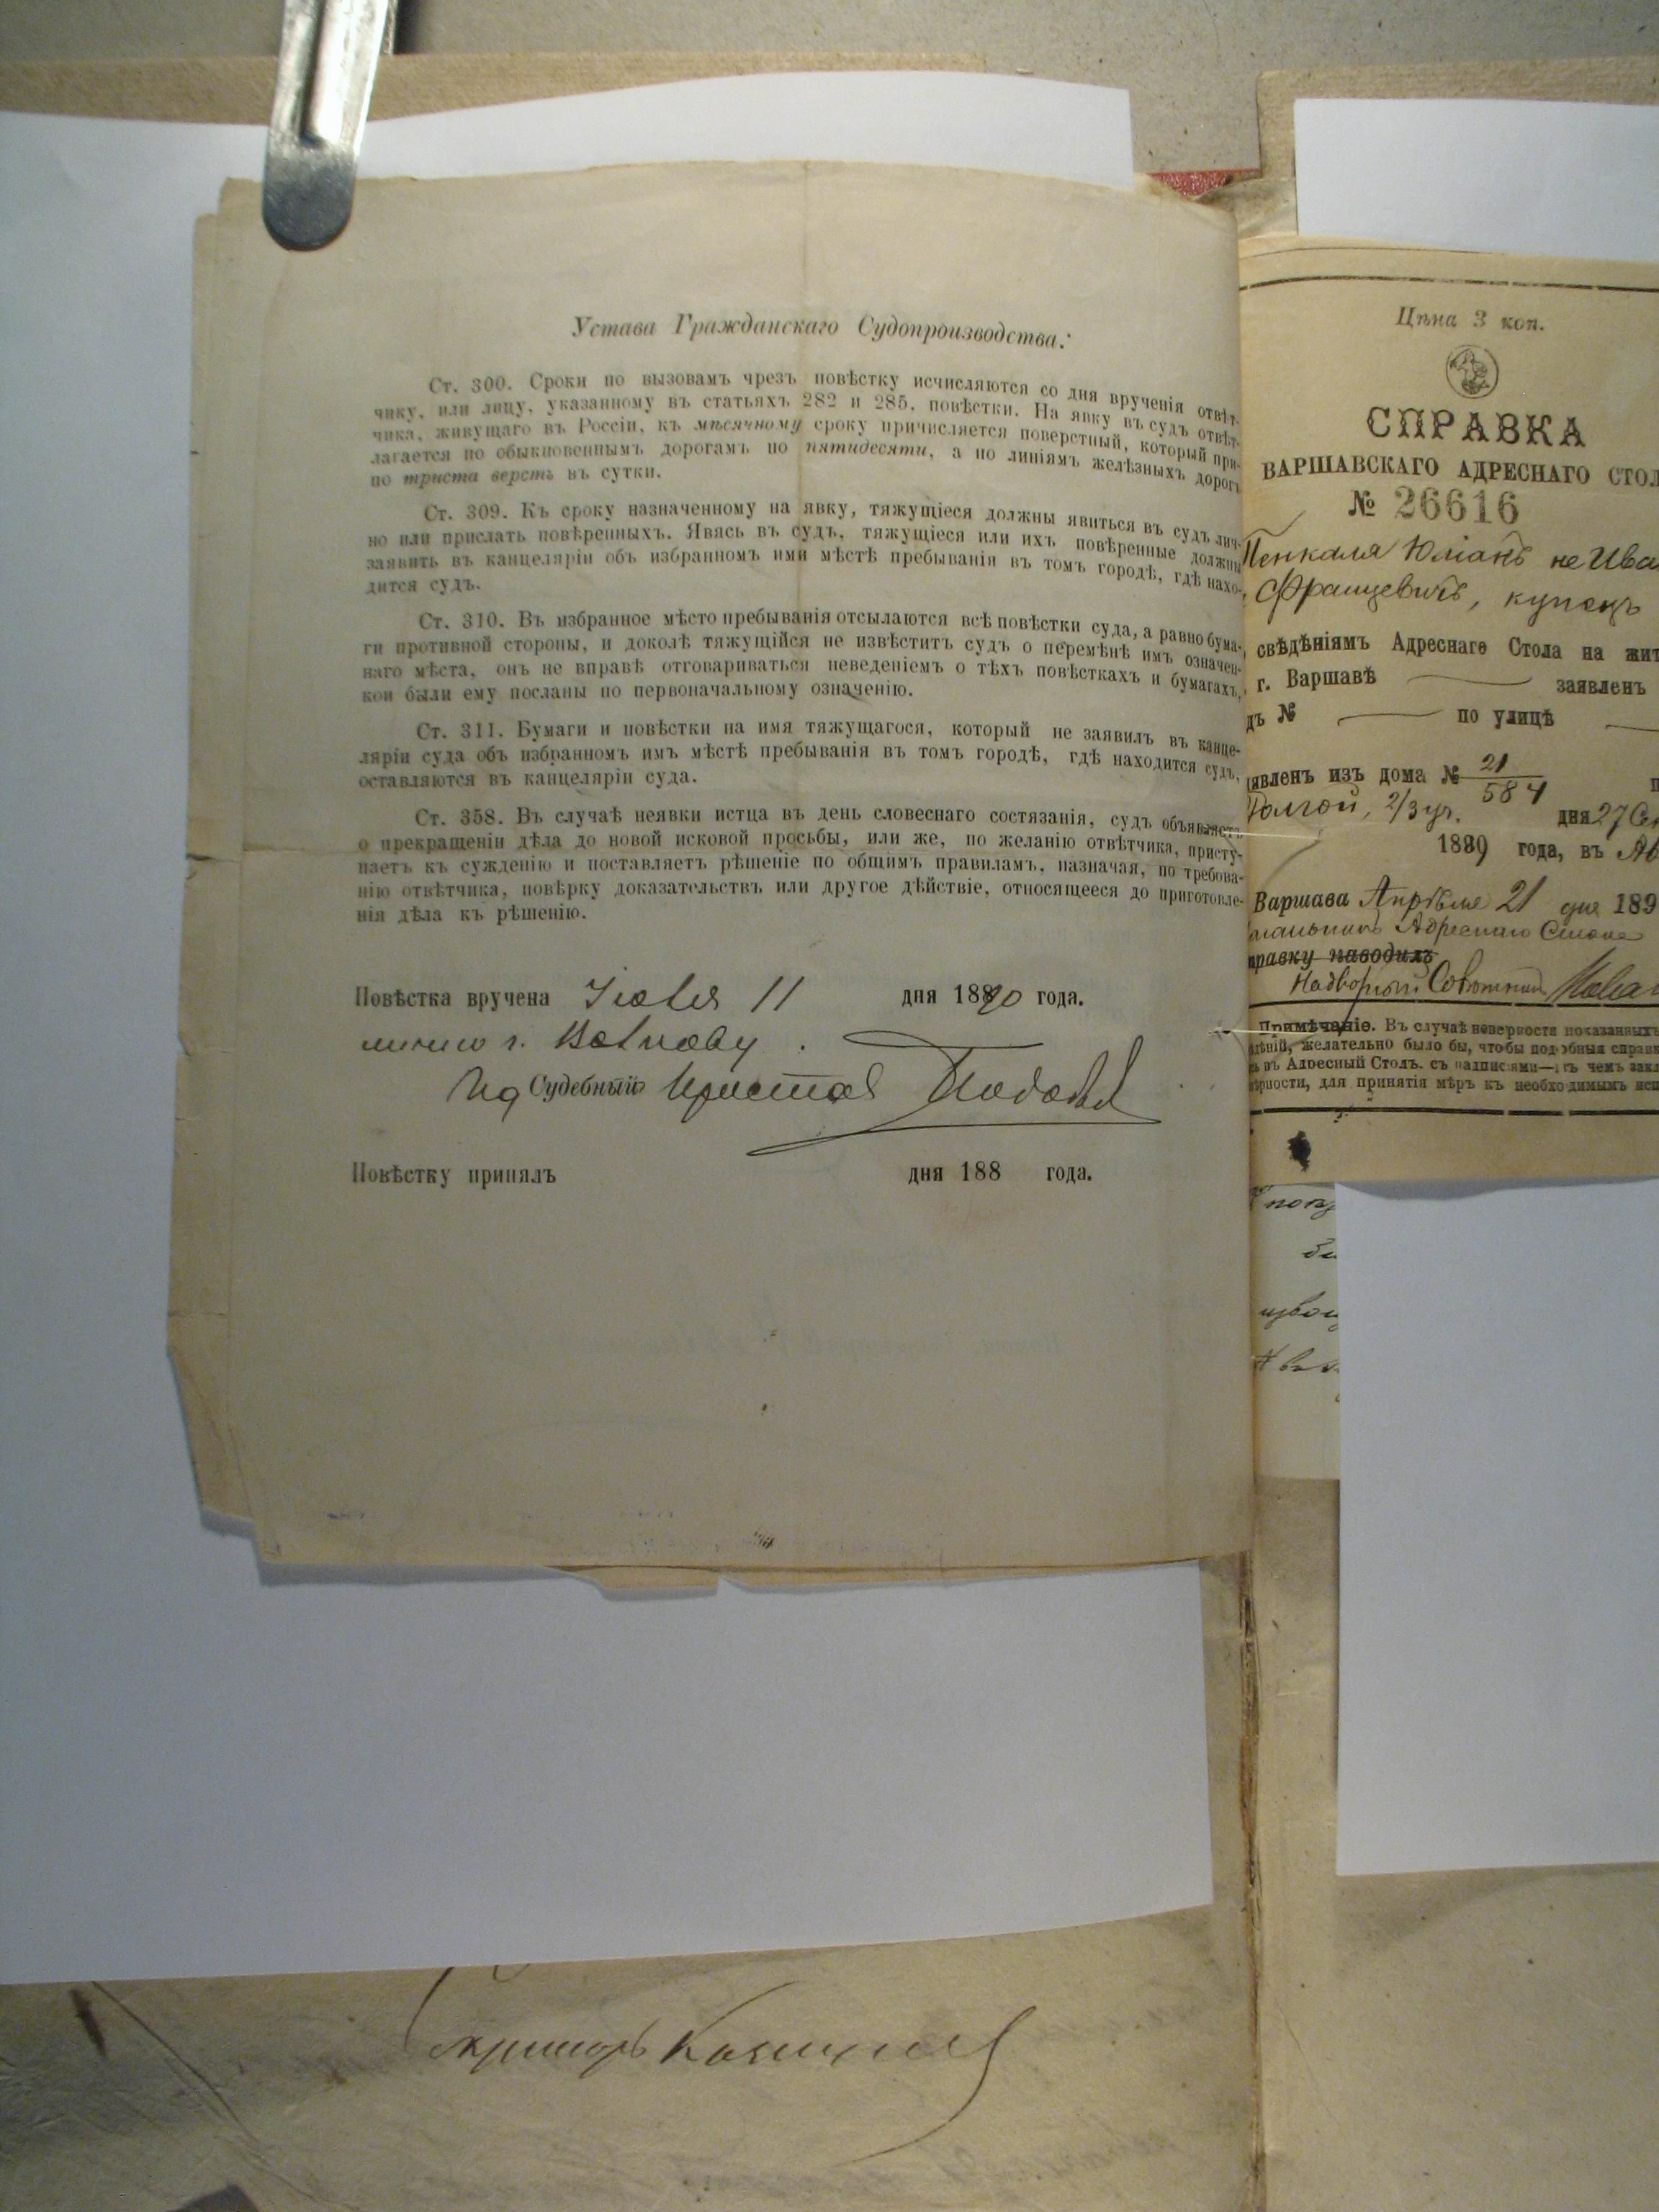 Устава Гражданскаго Судопроизводства:
Ст. 300. Сроки по вызовамъ чрезъ повѣстку исчисляются со дня врученія отвѣт-
чику, или лицу, указанному въ статьяхъ 282 и 285, повѣстки. На явку въ судъ отвѣт-
чика, живущаго въ Россіи, къ мѣсячному сроку причисляется поверстный, который при-
лагается по обыкновеннымъ дорогамъ по пятидесяти, а по линіямъ желѣзныхъ дорогъ
по триста верстъ въ сутки.
Ст. 309. Къ сроку назначенному на явку, тяжущіеся должны явиться въ судъ лич-
но или прислать повѣренныхъ. Явясь въ судъ, тяжущіеся или ихъ повѣренные должны
заявить въ канцеляріи объ избранномъ ими мѣстѣ пребыванія въ томъ городѣ, гдѣ нахо-
дится судъ.
Ст. 310. Въ избранное мѣсто пребыванія отсылаются всѣ повѣстки суда, а равно бума-
ги противной стороны, и доколѣ тяжущійся не извѣститъ судъ о перемѣнѣ имъ означен-
наго мѣста, онъ не вправѣ отговариваться неведеніемъ о тѣхъ повѣсткахъ и бумагахъ,
кои были ему посланы по первоначальному означенію.
Ст. 311. Бумаги и повѣстки на имя тяжущагося, который не заявилъ въ канце-
ляріи суда объ избранномъ имъ мѣстѣ пребыванія въ томъ городѣ, гдѣ находится судъ,
оставляются въ канцеляріи суда.
Ст. 358. Въ случаѣ неявки истца въ день словеснаго состязанія, судъ объявляетъ
о прекращеніи дѣла до новой исковой просьбы, или же, по желанію отвѣтчика, присту-
паетъ къ сужденію и поставляетъ рѣшеніе по общимъ правиламъ, назначая, по требова-
нію отвѣтчика, повѣрку доказательствъ или другое дѣйствіе, относящееся до приготовле-
нія дѣла къ рѣшенію.
Повѣстка вручена Іюля 11 дня 1890 года.
лично г.
Ид Судебный Приставъ
Повѣстку принялъ дня 188 года.
Цѣна 3 коп.
СПРАВКА
ВАРШАВСКАГО АДРЕСНАГО СТОЛ
№ 26616
Пенкаля Юліанъ не Ива
Францевичъ, купецъ
свѣдѣніямъ Адреснаго Стола на жит
г. Варшавѣ заявленъ
дъ № по улицѣ
явленъ изъ дома № 21/584 п
Долгой, 2/3 уч. дня 27 Се
1889 года, въ
Варшава Апрѣля 21 дня 189
Начальникъ Адреснаго Стола
правку наводилъ
Надворный Совѣтникъ
Примѣчаніе. Въ случаѣ неверности показанныхъ
дѣній, желательно было бы, чтобы подобныя справк
ь въ Адресный Столъ. съ надписями—въ чемъ закл
вѣрности, для принятія мѣръ къ необходимымъ исп